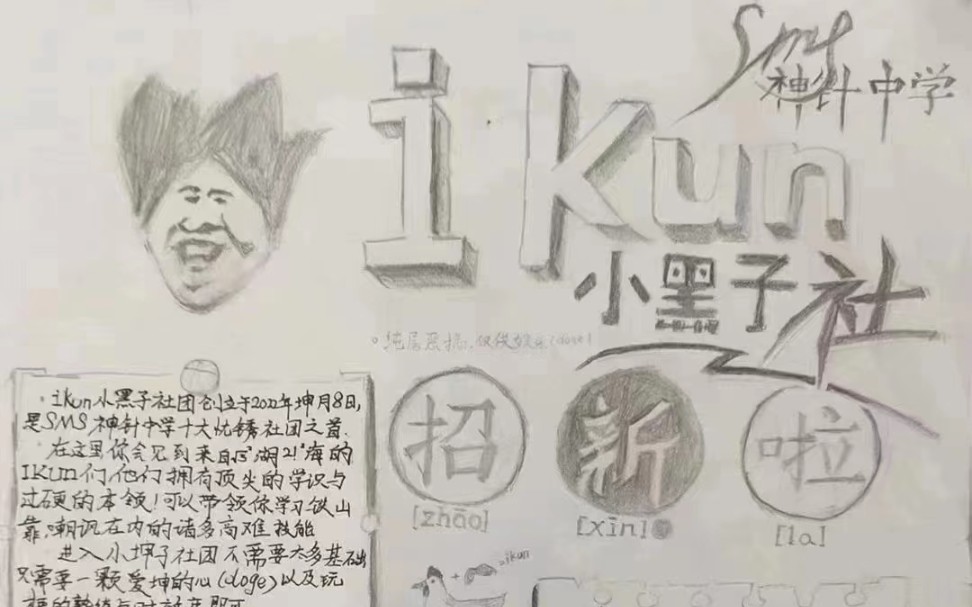 SMS
神针中学
ikun
小黑子社
。纯属恶搞，仅供娱乐(doge)
招
新
啦
[zhāo]
[xīn]
[la]
ikun小黑子社团创立于2022年坤月8日,
是SMS神针中学十大优锈社团之首.
在这里你会见到来自5"湖2!"海的
IKUN们,他们拥有顶尖的学识与
过硬的本领!可以带领你学习铁山
靠,嘲讥在内的诸多高难技能
进入小坤子社团不需要太多基础
只需要一颗爱坤的心(doge)以及玩
+
=ikun